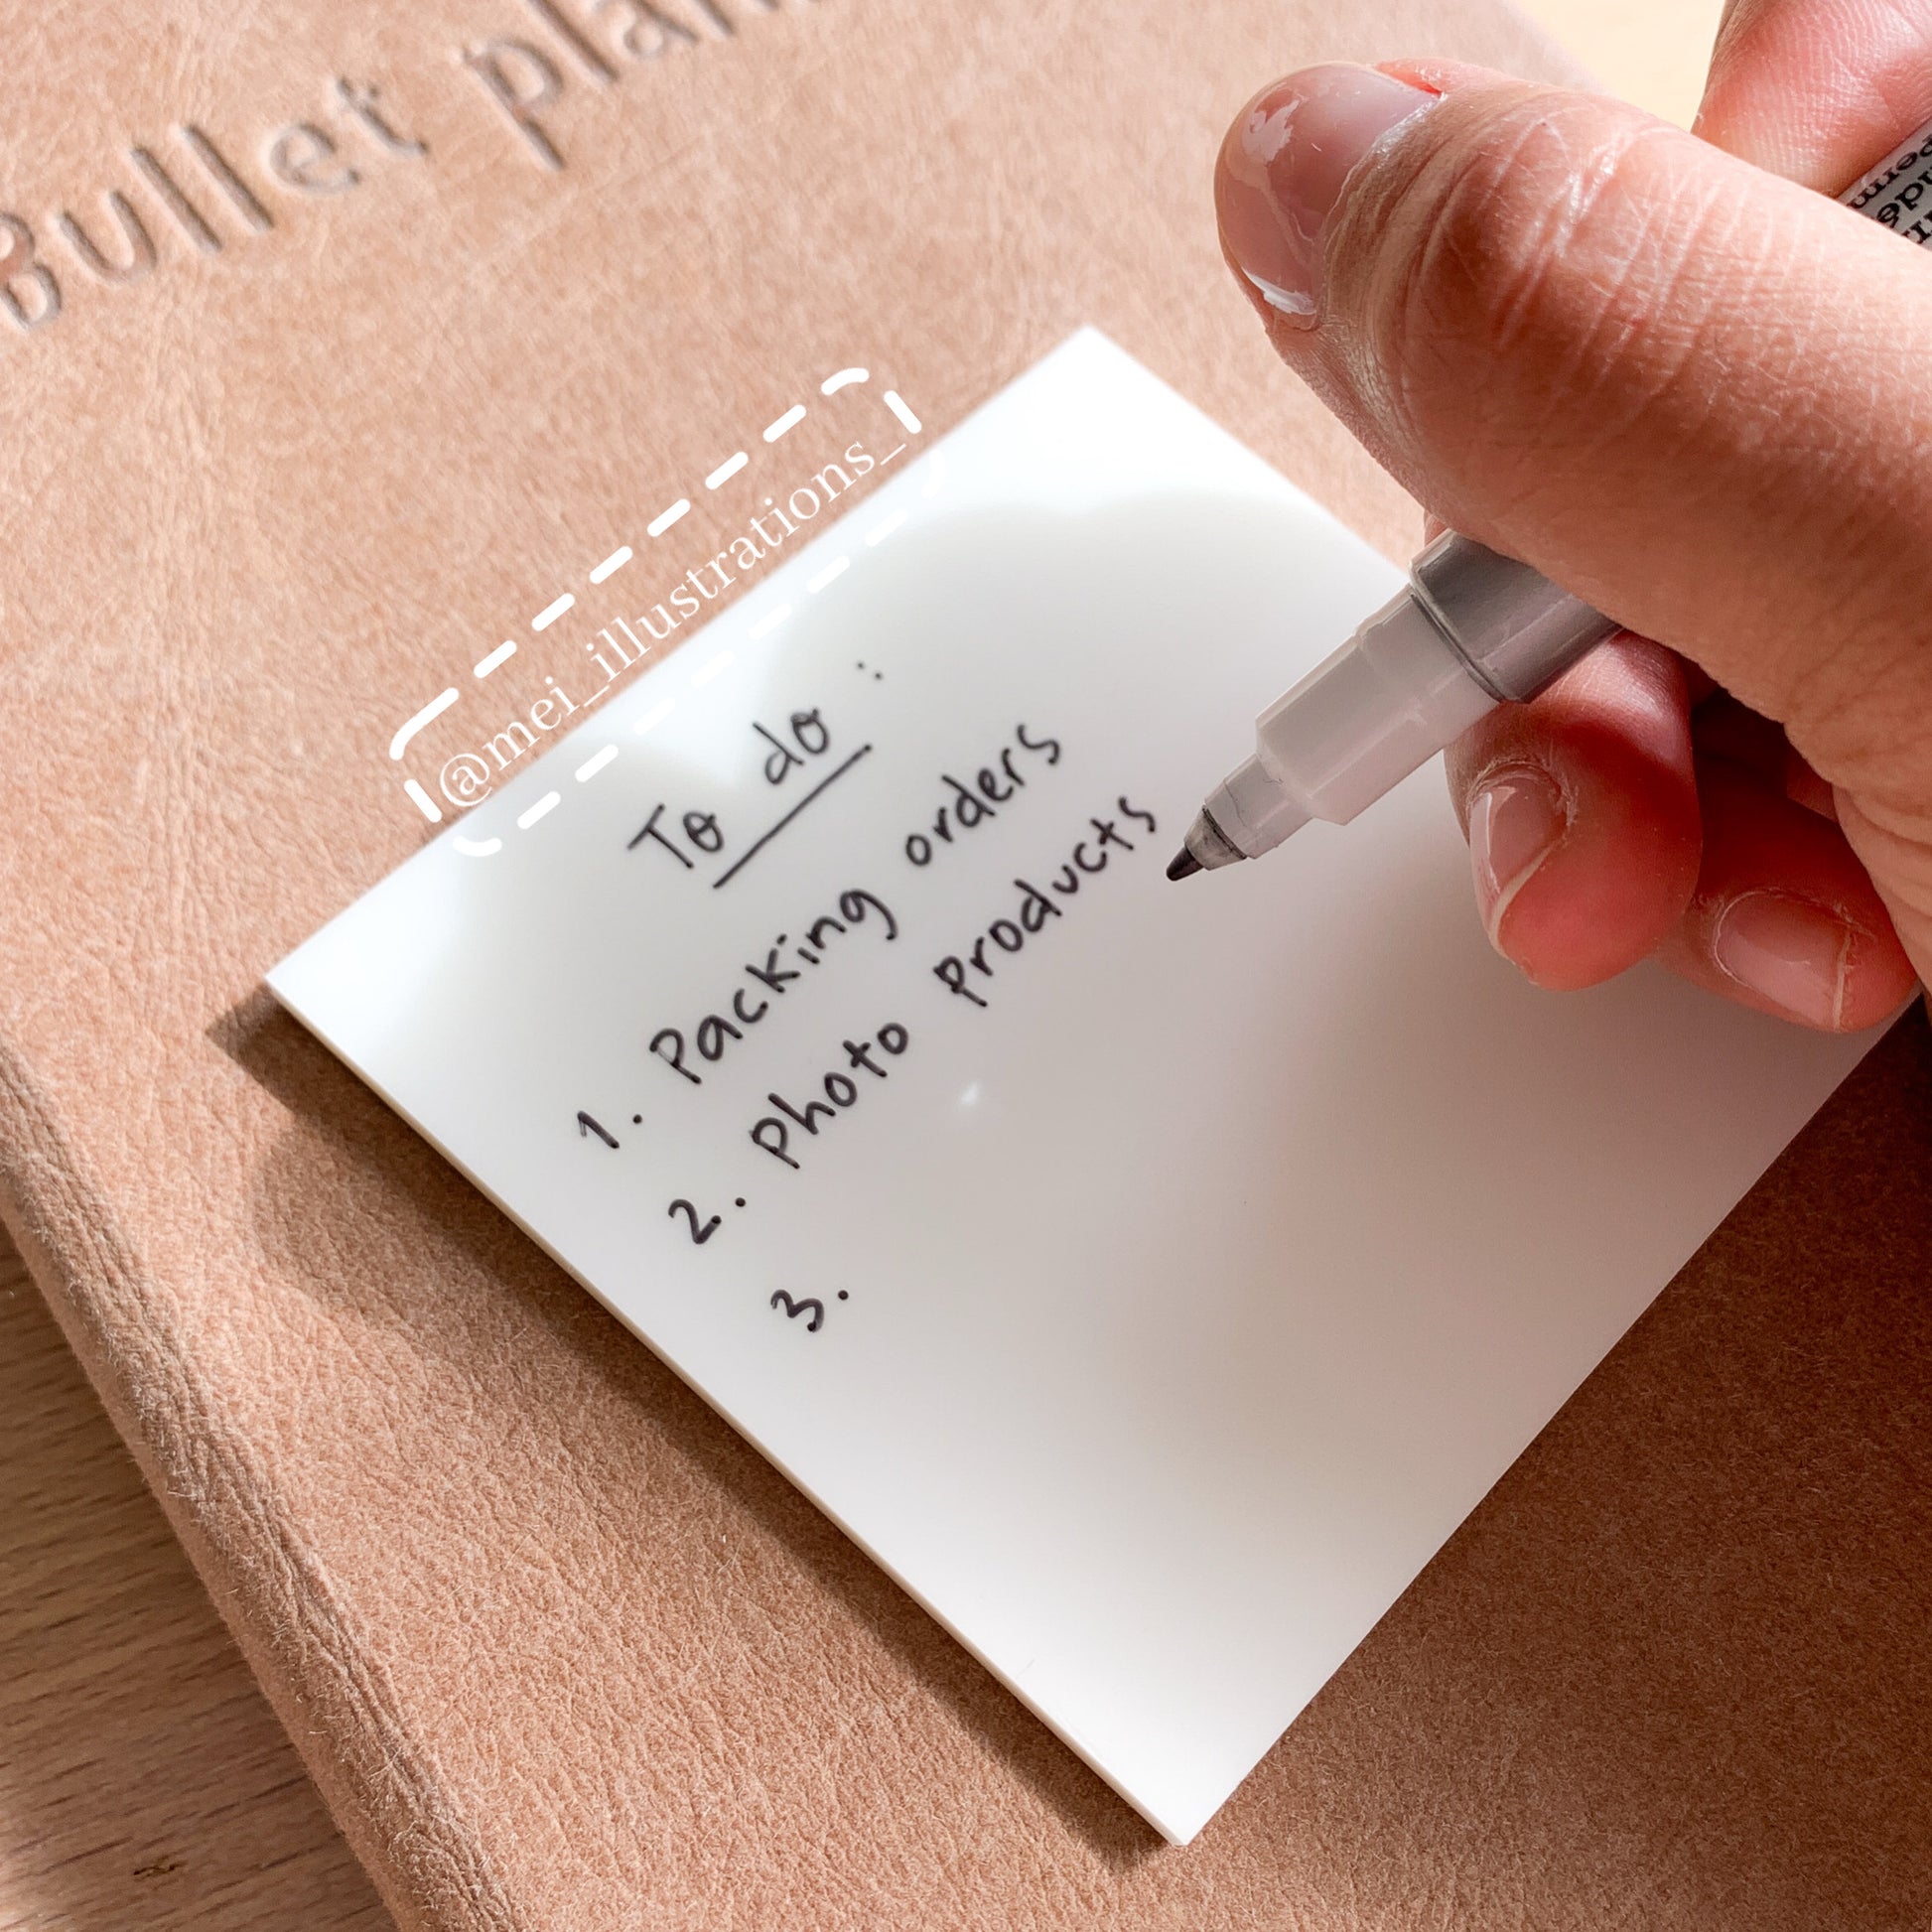 Bullet
@mei_illustrations_
To do :
1. Packing orders
2. Photo products
3.